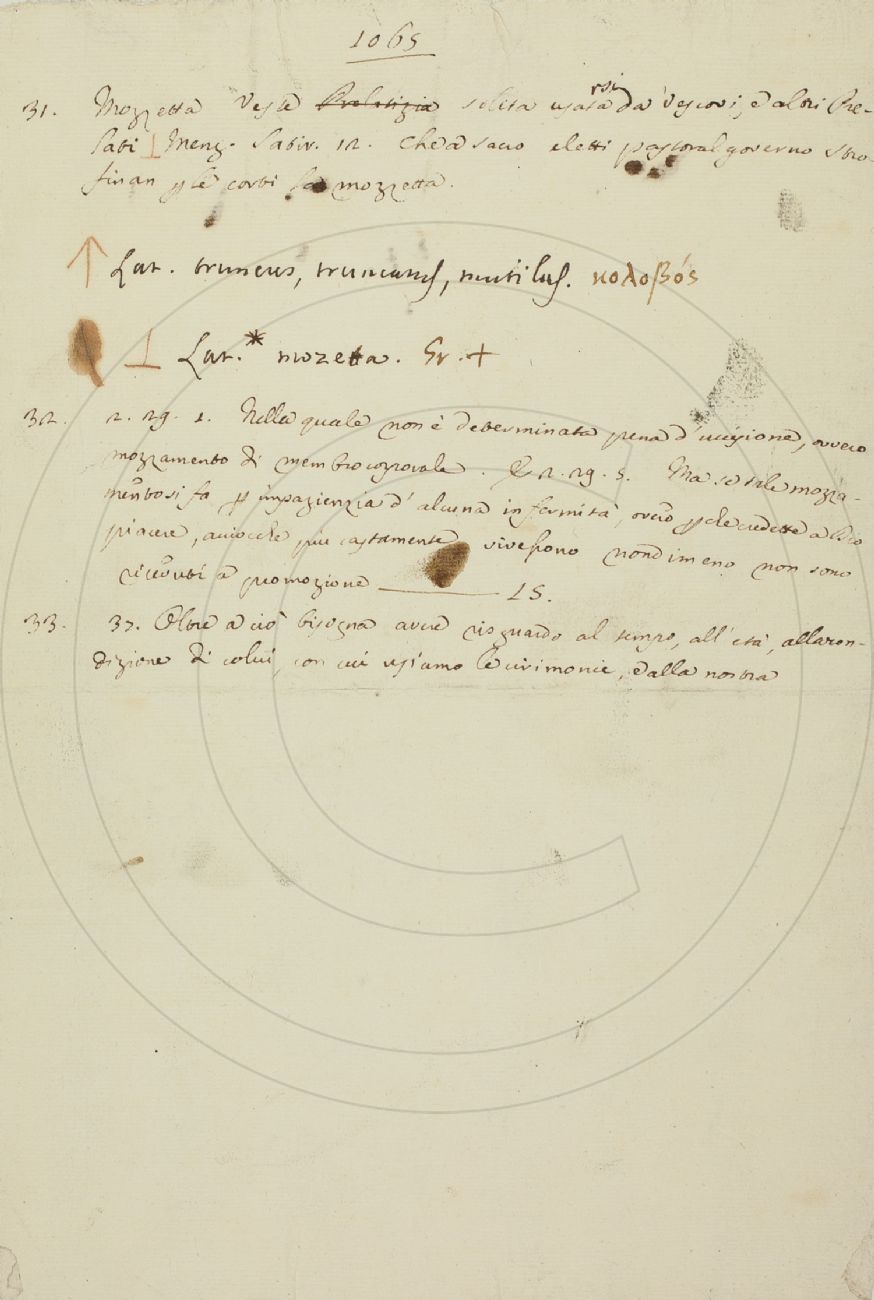 1065
31. Mozzetta Veste Prelatizia solita usarsi da' Vescovi, e altri Pre-
lati ⊥ Menz. Satir. 12. Che a sacro eletti pastoral governo Stro-
finan p le corti la mozzetta.
↑ Lat. truncus, truncatus, mutilus. κολοβός
⊥ Lat.* mozetta. Gr. +
32. 2. 29. 1. Nella quale non è determinata pena d'uccisione, ovvero
mozzamento di membro corporale. E 2. 29. 5. Ma se tale mozza-
mento si fa p impazienzia d'alcuna infermità, ovvero p che credette a Dio
piacere, acciocchè più castamente vivessono nondimeno non sono
ricevuti a promozione 15.
33. 37. Oltre a ciò bisogna avere risguardo al tempo, all'età, alla con-
dizione di colui, con cui usiamo le cirimonie, e alla nostra